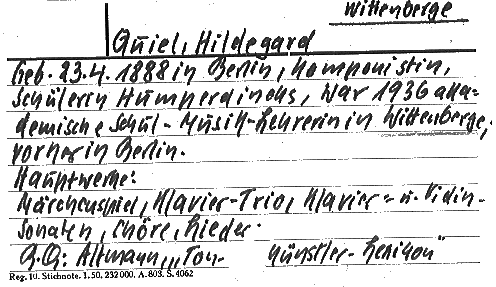 Wittenberge
Quiel, Hildegard
Geb. 23.4.1888 in Berlin, Komponistin,
Schülerin Humperdincks, war 1936 aka-
demische Schul-Musik-Lehrerin in Wittenberge,
vorher in Berlin.
Hauptwerke:
Märchenspiel, Klavier-Trio, Klavier- u. Violin-
Sonaten, Chöre, Lieder.
Q.Q: Altmann, „Ton-künstler-Lexikon"
Reg. 10. Stichnote. 1.50. 232000. A. 803. S. 4062